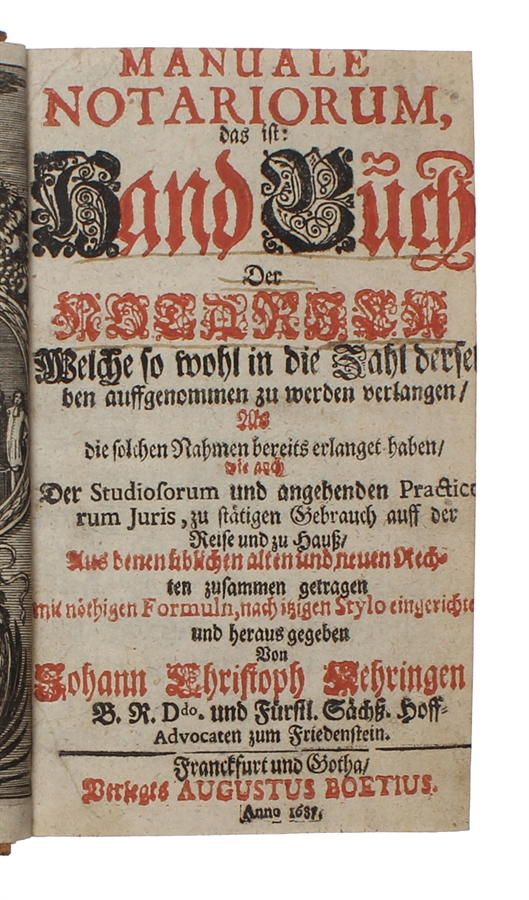 MANUALE
NOTARIORUM,
das ist:
Hand Büch
Der
NOTARIEN
Welche so wohl in die Zahl dersel
ben auffgenommen zu werden verlangen/
Als
die solchen Nahmen bereits erlanget haben/
wie auch
Der Studiosorum und angehenden Practico
rum Juris, zu stätigen Gebrauch auff der
Reise und zu Hauß/
Aus denen üblichen alten und neuen Rech-
ten zusammen getragen
mit nöthigen Formuln, nach itzigen Stylo eingerichte
und heraus gegeben
Von
Johann Christoph Nehringen
B. R. Ddo. und Fürstl. Sächß. Hoff-
Advocaten zum Friedenstein.
Franckfurt und Gotha/
Verlegts AUGUSTUS BOETIUS.
Anno 1687.